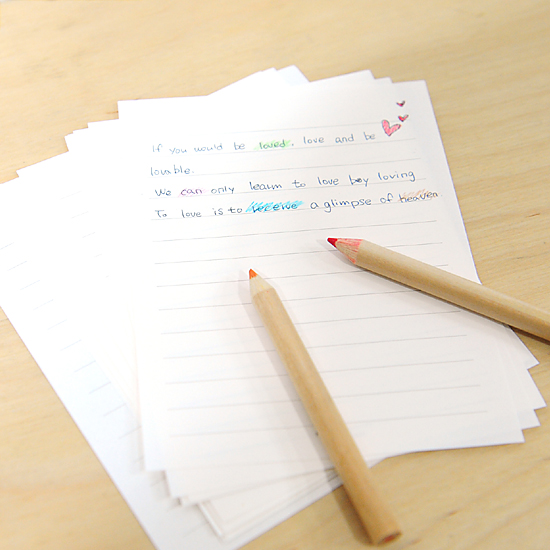 If you would be loved, love and be
lovable.
We can only learn to love by loving
To love is to receive a glimpse of heaven